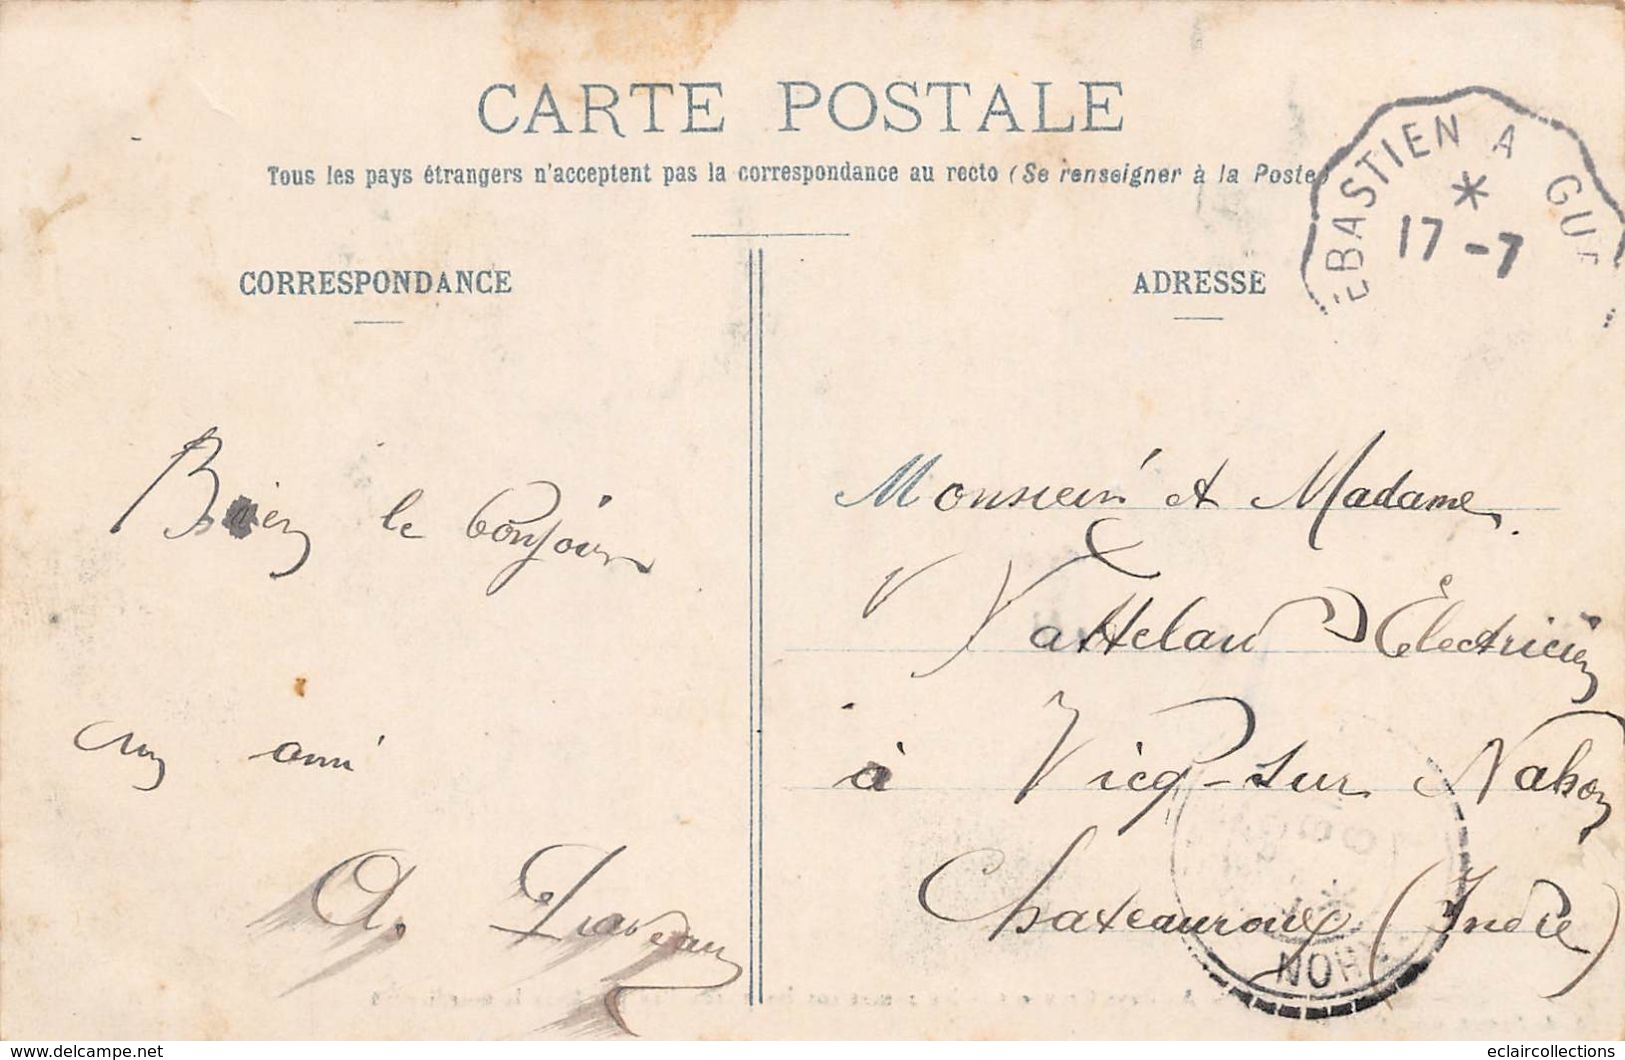 CARTE POSTALE
Tous les pays étrangers n'acceptent pas la correspondance au recto (Se renseigner à la Poste)
EBASTIEN A GUE
*
17 -7
CORRESPONDANCE
ADRESSE
Bien le bonjour
mon ami
A.
Monsieur et Madame
Vattelau Électricien
à Vicq-sur Nahon
Chateauroux (Indre)
NOH
delcampe.net
eclaircollections